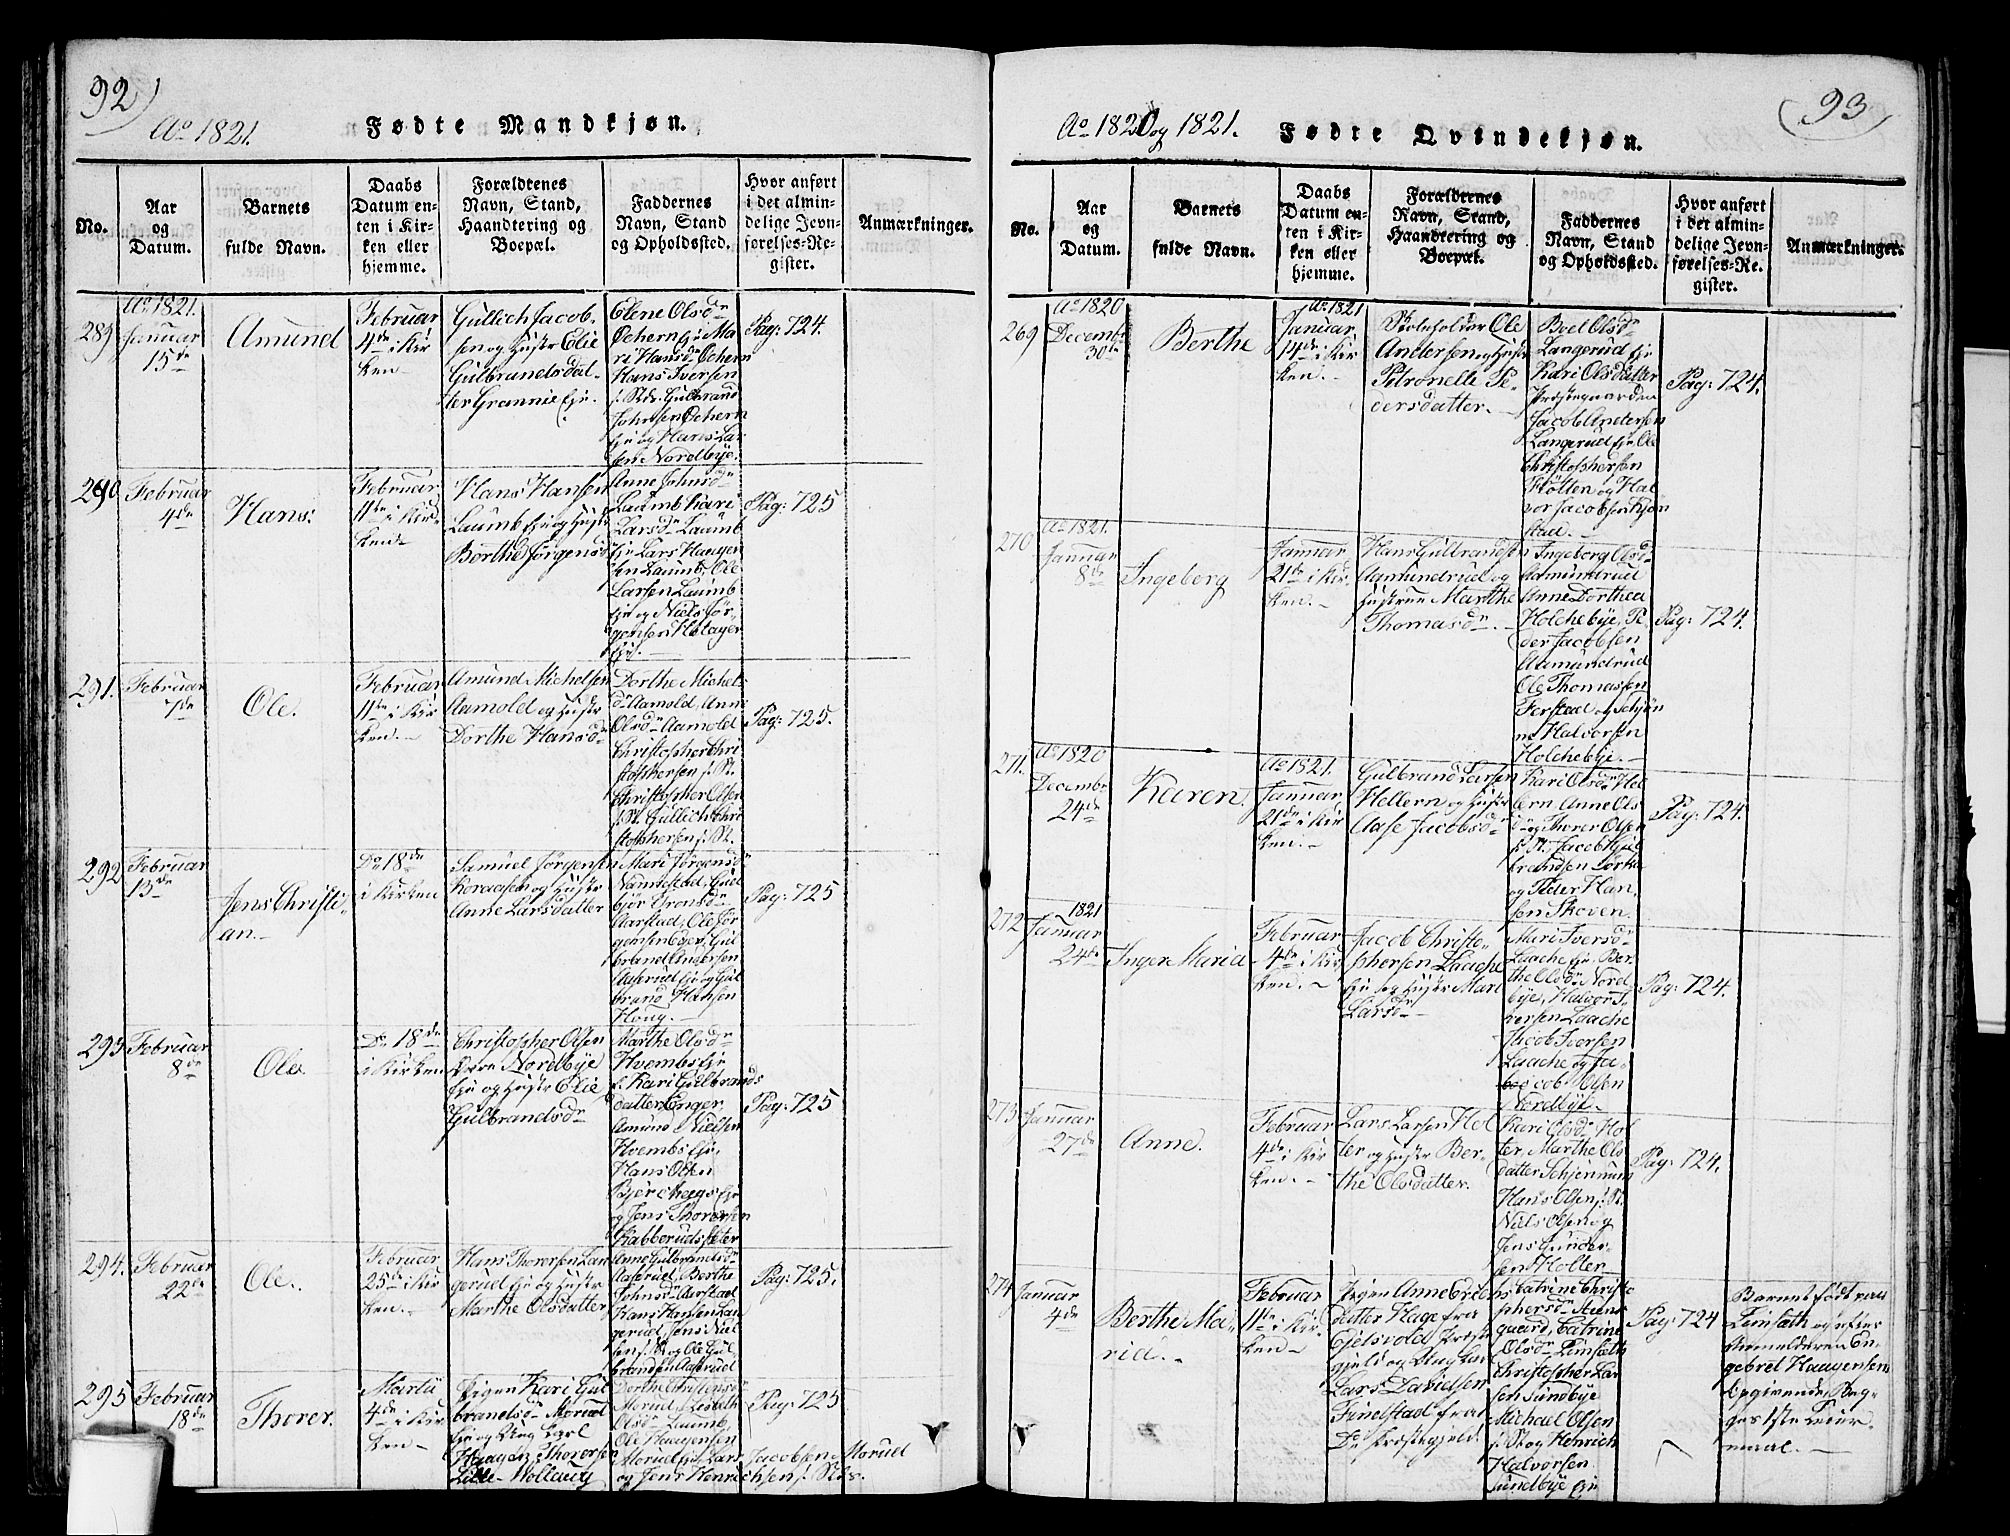 92)
Ao 1821.
Fødte Mandkjøn.
No.
Aar
og
Datum.
Barnets
fulde Navn.
Daabs
Datum en-
ten i Kir-
ken eller
hjemme.
Forældrenes
Navn, Stand,
Haandtering og
Boepæl.
Faddernes
Navn, Stand
og Opholdssted.
Hvor anført
i det almin-
delige Jevn-
førelses-Re-
gister.
Anmærkninger.
289
Ao 1821.
Januar
15de
Amund
Februar
4de i Kir
ken
Gullich Jacob-
sen og Hustr Elie
Gulbrandsdat-
ter Grannie
Elene Olsdr
Ochern
ri Hansdr Ochern
Hans Iversen
Gulbrand
Johnsen Ochern
og Hans Lar
sen Nordbye.
Pag: 724.
290
Februar
4de
Hans.
Februar
11te i Kir
ken
Hans Hansen
Laumb og Hustr
Berthe Jørgensd
Anne Johnsdr
Laumb Kari
Larsdr Laumb
Lars Haagen
sen Laumb, Ole
Larsen Laumb
og Niels Jør-
gensen
Pag: 725
291.
Februar
7de
Ole.
Februar
11te i Kir
ken.
Amund Michelsen
Aamold og Hustr
Dorthe Hansdr
Dorthe Michels
dr Aamold, Anne
Olsdr Aamold
Christopher Chri
stophersen
Christopher Olsen
Gullich Chri
stophersen
Pag: 725.
292
Februar
13de
Jens Christi-
an.
Do 18de
i Kirken
Samuel Jørgensen
og Hustr
Anne Larsdatter
Mari Jørgensdr
Gul
Aarstad, Ole Jør
gensen Gul
brand Andersen
Aaserud og Gul
brand Hansen
Houg.
Pag: 725
293
Februar
8de
Ole
Do 18de
i Kirken
Christopher Olsen
Nordbye
og Hustr Elie
Gulbrandsdr
Marthe Olsdr
Hvembs
Kari Gulbrands
datter Enger
Amund Nielsen
Hvembs
Hans Olsen
og Jens Thorersen
Pag: 725
294.
Februar
22de
Ole.
Februar
25de i Kir
ken.
Hans Thorersen Lan
gerud og Hustr
Marthe Olsdatter
Anne Gulbrandsdr
Aaserud, Berthe
Johnsdr Aarstad
Hans Hansen Lan
gerud, Jens Niel
sen og Ole Gul
brandsen Aaserud
Pag: 725.
295
Februar
18de
Thorer.
Martii
4de i Kir
ken
Pigen Kari Gul
brandsdr Morud
og Ung Karl
Haagen Thorersen
Lille
Dorthe Christensdr
Morud, Lisbeth
Olsdr Laumb,
Ole Haagensen
Morud Lars Jacobsen Morud
og Jens Henrichsen
Pag: 725
(93
Ao 1820 og 1821.
Fødte Qvindekjøn.
No.
Aar
og
Datum.
Barnets
fulde Navn.
Daabs
Datum en-
ten i Kir-
ken eller
hjemme.
Forældrenes
Navn, Stand,
Haandtering og
Boepæl.
Faddernes
Navn, Stand
og Opholdssted.
Hvor anført
i det almin-
delige Jevn-
førelses-Re-
gister.
Anmærkninger.
269
Ao 1820
Decembr
30te
Berthe
Ao 1821
Januar
14de i Kir
ken.
Skoleholder Ole
Andersen og Hustr
Petronelle Pe-
dersdatter.
Boel Olsdr
Langerud
Kari Olsdatter
Præstegaarden
Jacob Andersen
Langerud Ole
Christophersen
og Hal
vor Jacobsen Kjøn
stad.
Pag: 724.
270
Ao 1821.
Januar
8de
Ingeborg
Januar
21de i Kir
ken.
Hans Gulbrandsen
Aamundrud og
Hustrue Marthe
Thomasdr.
Ingeborg Olsdr
Aamundrud
Anne Dorthea
Holchebye, Pe
der Jacobsen
Aamundrud
Ole Thomassen
Ferstad og
Halvorsen
Holchebye.
Pag: 724.
271.
Ao 1820
Decembr
24de
Karen.
Ao 1821.
Januar
21de i Kir
ken.
Gulbrand Larsen
Hellern og Hustr
Aase Jacobsdr
Kari Olsdr Hel
lern Anne Ols
dr og Thorer Olsen
Jacob Gul
brandsen
og Peder Han
sen Skoven.
Pag: 724.
272
1821
Januar
24de
Inger Maria
Februar
4de i Kir
ken.
Jacob Christo-
phersen Laache
og Hustr Mari
Larsdr
Mari Iversdr
Laache Ber
the Olsdr Nord
bye, Halvor I-
versen Laache
Jacob Iversen
Laache og Ja-
cob Olsen
Nordbye.
Pag: 724.
273
Januar
27de
Anne.
Februar
4de i Kir
ken.
Lars Larsen Hol
ter og Hustr Ber-
the Olsdatter.
Kari Olsdr Hol
ter, Marthe Ols
datter
Hans Olsen
Niels Olsen og
Jens Gunder-
sen Holter
Pag: 724.
274
Januar
4de
Berthe Ma-
ria.
Februar
11te i Kir
ken
Pigen Anne
datter Hage fra
Eidsvold Præste
gjeld og Ung Karl
Lars Davidsen
Findstad fra
Do Præstegjeld.
Catrine Christo
phersdr Steens
gaard, Catrine
Olsdr Limsæth
Christopher Lar
sen Sundbye
Michael Olsen
og Henrich
Halvorsen
Sundbye
Pag: 724
Barnet født paa
Limsæth og efter
Anmelderen En
gebrel Haagensens
Opgivende, Beg-
ges 1ste Leier
maal.